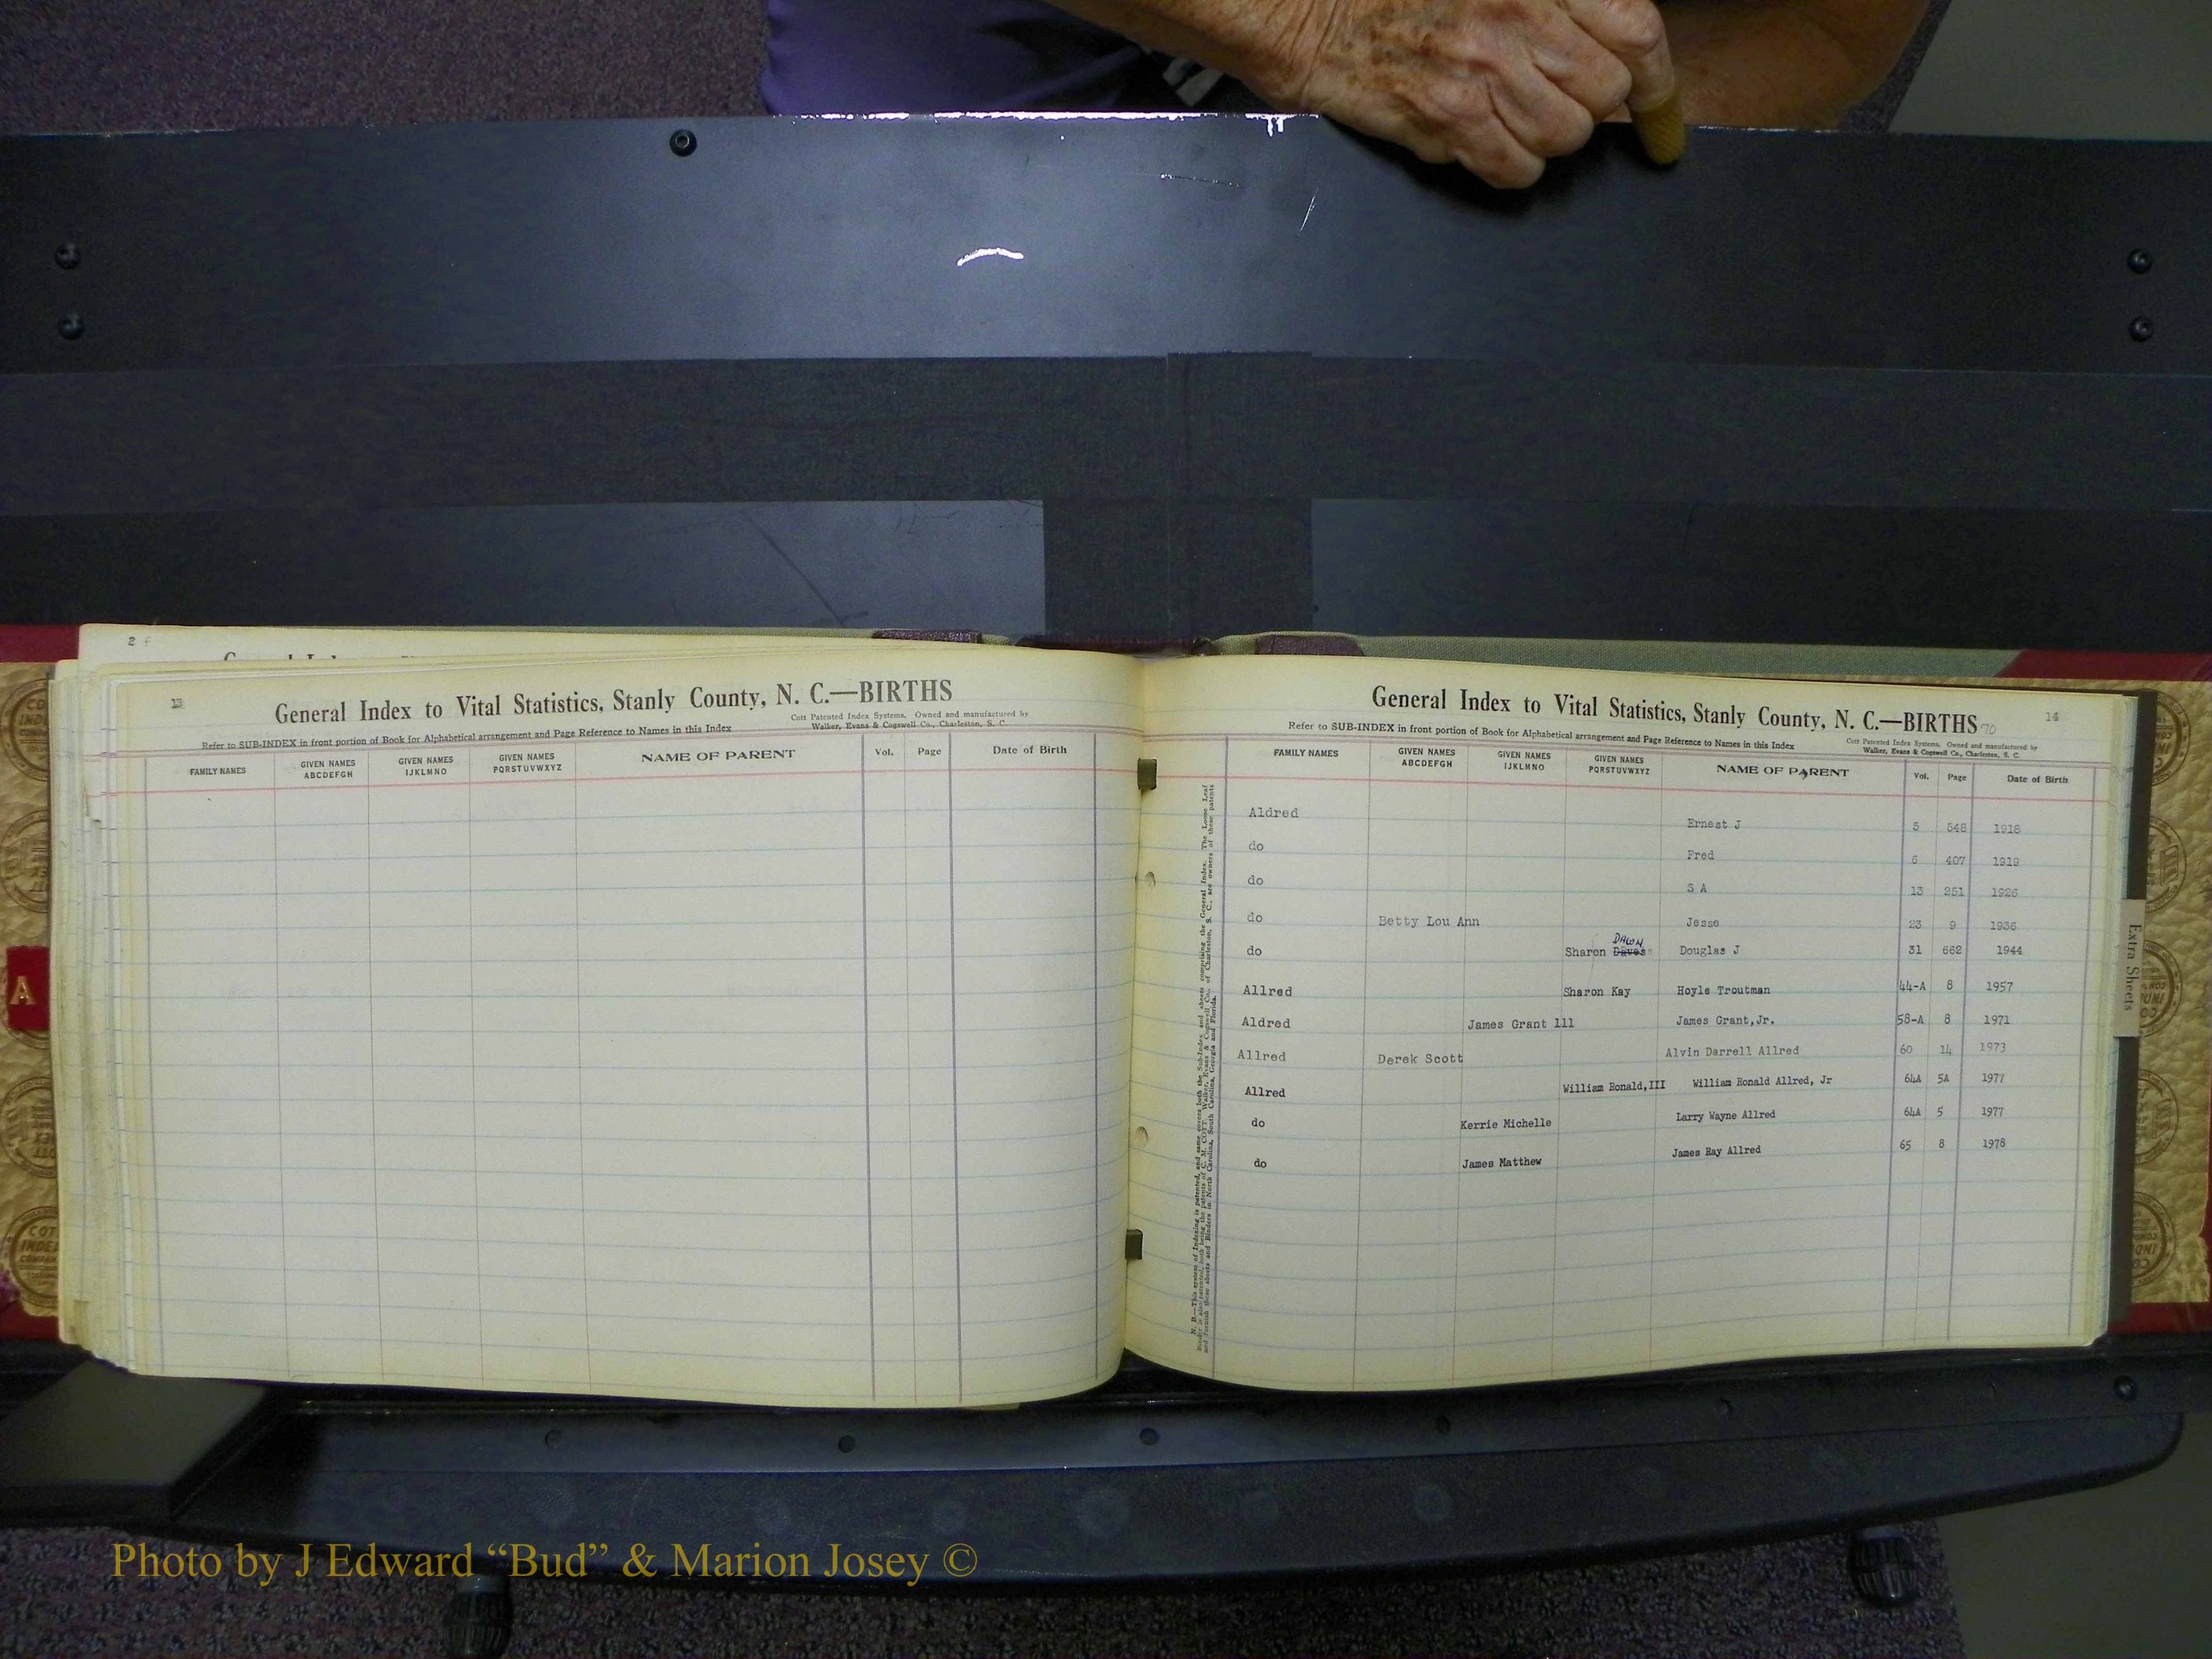 2
13
General Index to Vital Statistics, Stanly County, N. C.—BIRTHS
Cott Patented Index Systems, Owned and manufactured by
Walker, Evans & Cogswell Co., Charleston, S. C.
Refer to SUB-INDEX in front portion of Book for Alphabetical arrangement and Page Reference to Names in this Index
FAMILY NAMES GIVEN NAMES ABCDEFGH GIVEN NAMES IJKLMNO GIVEN NAMES PQRSTUVWXYZ NAME OF PARENT Vol. Page Date of Birth
A
14
General Index to Vital Statistics, Stanly County, N. C.—BIRTHS 70
Refer to SUB-INDEX in front portion of Book for Alphabetical arrangement and Page Reference to Names in this Index
Cott Patented Index Systems, Owned and manufactured by
Walker, Evans & Cogswell Co., Charleston, S. C.
FAMILY NAMES GIVEN NAMES ABCDEFGH GIVEN NAMES IJKLMNO GIVEN NAMES PQRSTUVWXYZ NAME OF PARENT Vol. Page Date of Birth
Aldred Ernest J 5 548 1918
do Fred 6 407 1919
do S A 13 251 1926
do Betty Lou Ann Jesse 23 9 1936
DAWN
do Sharon Daves Douglas J 31 662 1944
Allred Sharon Kay Hoyle Troutman 44-A 8 1957
Aldred James Grant 111 James Grant,Jr. 58-A 8 1971
Allred Derek Scott Alvin Darrell Allred 60 14 1973
Allred William Ronald,III William Ronald Allred, Jr 64A 5A 1977
do Kerrie Michelle Larry Wayne Allred 64A 5 1977
do James Matthew James Ray Allred 65 8 1978
N. B.—This system of Indexing is patented, and same covers both the Sub-Index and sheets comprising the General Index. The Loose Leaf
Binder is also patented, both being the patents of C. M. COTT. Walker, Evans & Cogswell Co., of Charleston, S. C., are owners of these patents
and furnish these sheets and Binders in North Carolina, South Carolina, Georgia and Florida.
Extra Sheets
Photo by J Edward “Bud” & Marion Josey ©